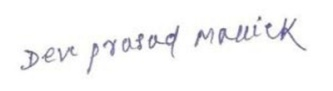 Dev prasad Mallick